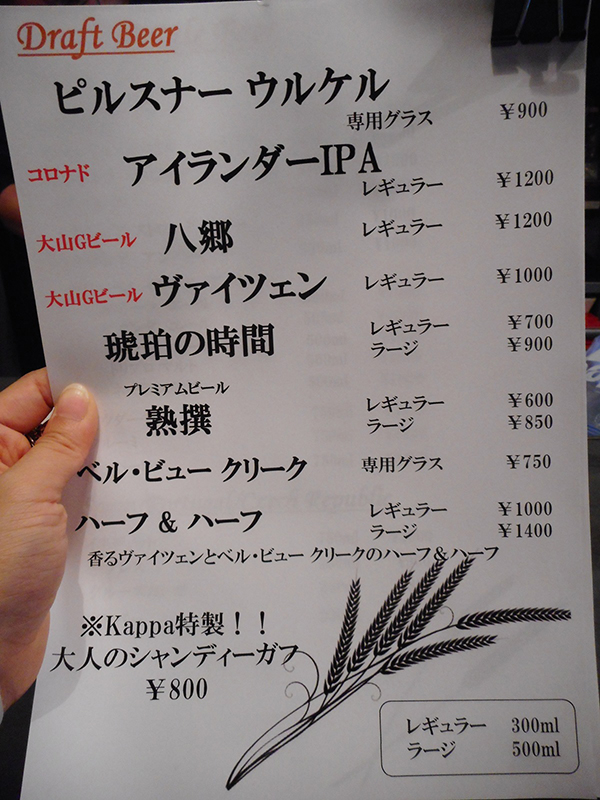 Draft Beer
ピルスナー ウルケル
専用グラス ¥900
コロナド アイランダーIPA
レギュラー ¥1200
大山Gビール 八郷 レギュラー ¥1200
大山Gビール ヴァイツェン レギュラー ¥1000
琥珀の時間 レギュラー ¥700
ラージ ¥900
プレミアムビール
熟撰 レギュラー ¥600
ラージ ¥850
ベル・ビュー クリーク 専用グラス ¥750
ハーフ & ハーフ レギュラー ¥1000
ラージ ¥1400
香るヴァイツェンとベル・ビュー クリークのハーフ&ハーフ
※Kappa特製!!
大人のシャンディーガフ
¥800
レギュラー 300ml
ラージ 500ml